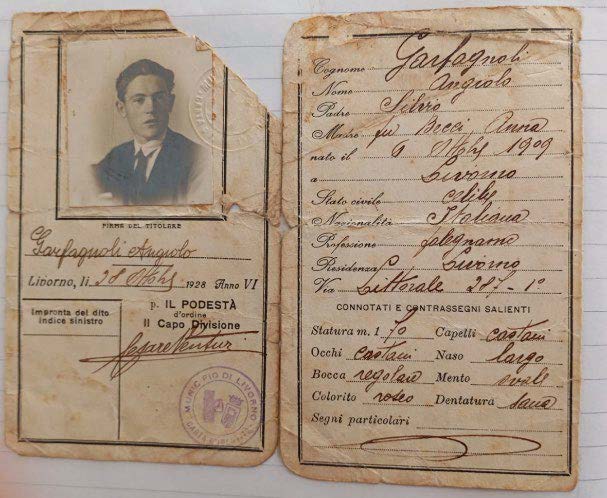 FIRMA DEL TITOLARE
Garfagnoli Angiolo
Livorno, lì 28 Ottobre 1928 Anno VI
Impronta del dito
indice sinistro
p. IL PODESTÀ
d'ordine
Il Capo Divisione
Cesare Venturi
MUNICIPIO DI LIVORNO
Cognome Garfagnoli
Nome Angiolo
Padre
Madre fu Becci Anna
nato il 6 Ottobre 1909
a Livorno
Stato civile celibe
Nazionalità Italiana
Professione falegname
Residenza Livorno
Via Littorale 287-1°
CONNOTATI E CONTRASSEGNI SALIENTI
Statura m. 1 70 Capelli castani
Occhi castani Naso largo
Bocca regolare Mento ovale
Colorito roseo Dentatura sana
Segni particolari